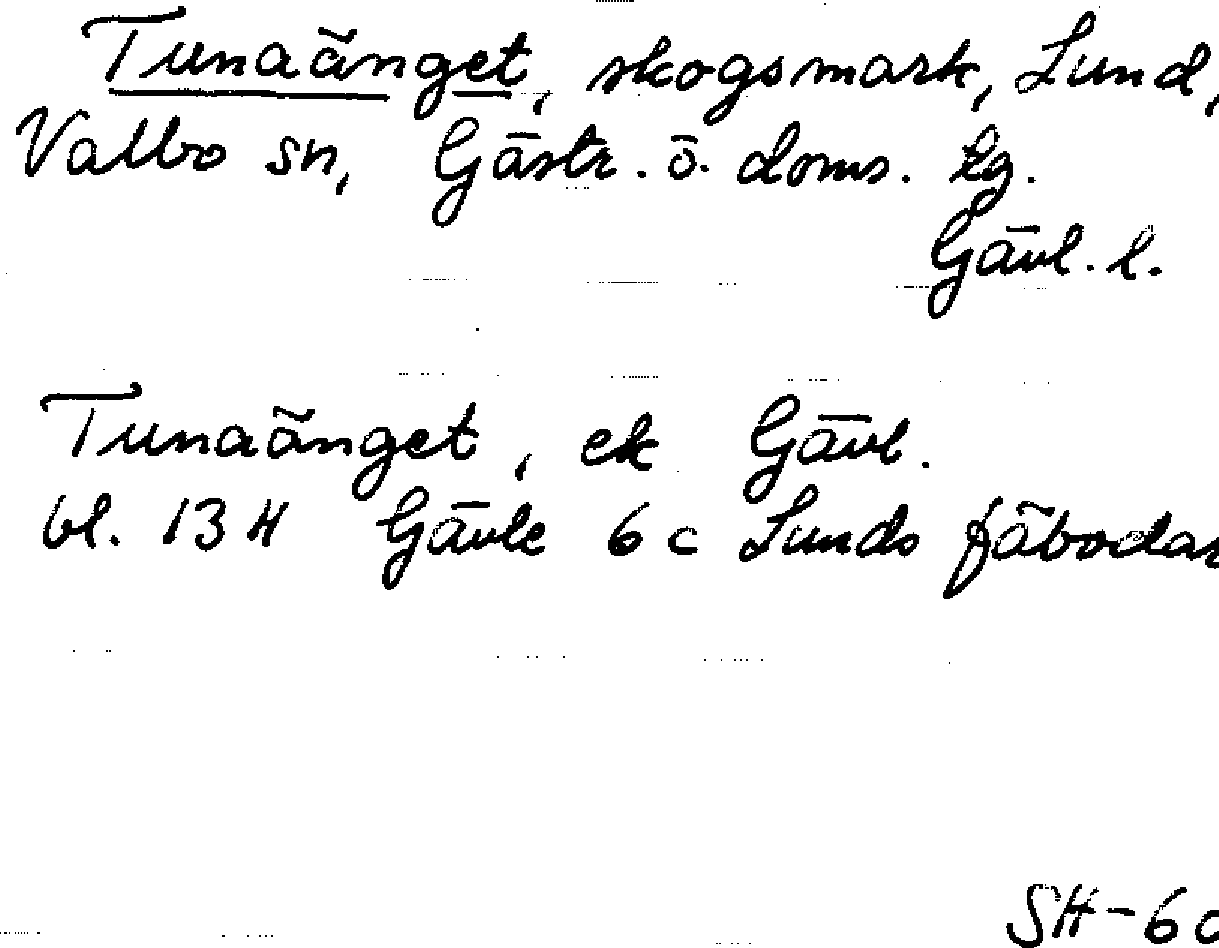 Tunaänget, skogsmark, Lund,
Valbo sn, Gästr. ö. doms. tg.
Gävl. l.
Tunaänget, ek Gävl.
bl. 13 H Gävle 6 c Lunds fäbodar
SH-60